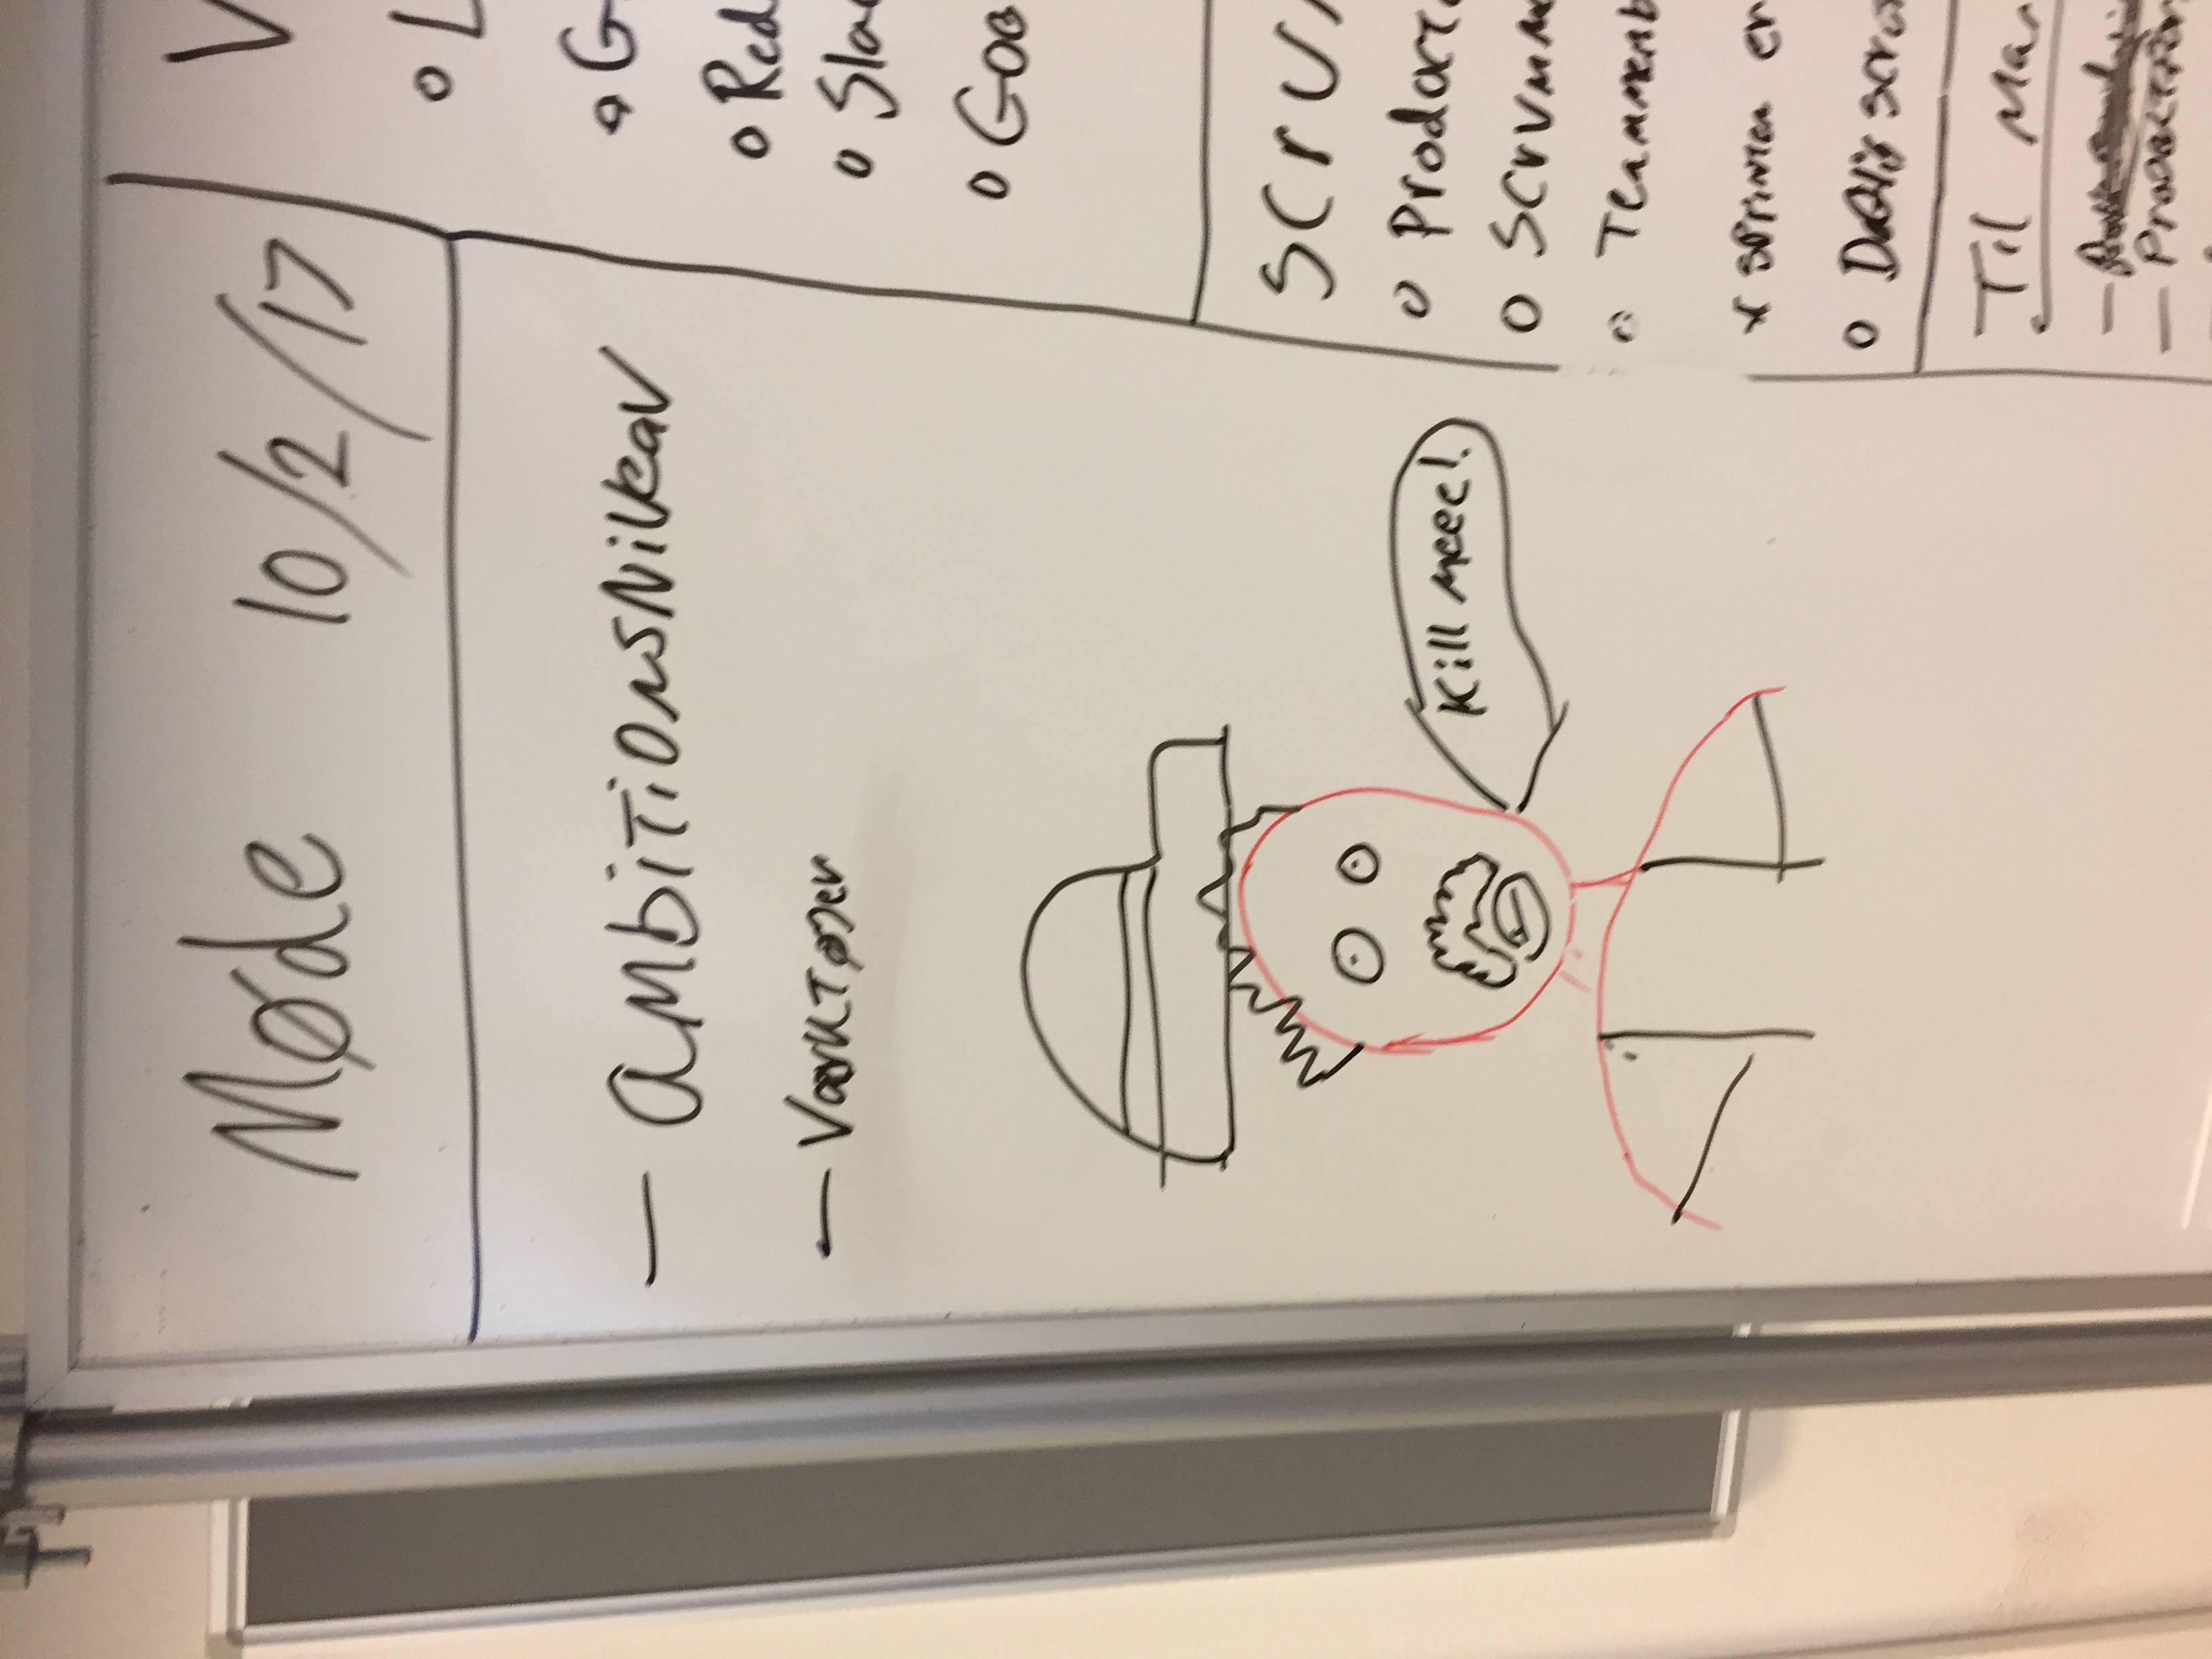 Møde 10/2/17
- AmbitionsNiveau
- Værktøjer
Kill meee!
V
o L
o G
o Red
o Sla
o Goo
Scru
o Product
o Scrumm
o Teammemb
* Sprinten er
o Daily scru
Til Man
-
- Produkt